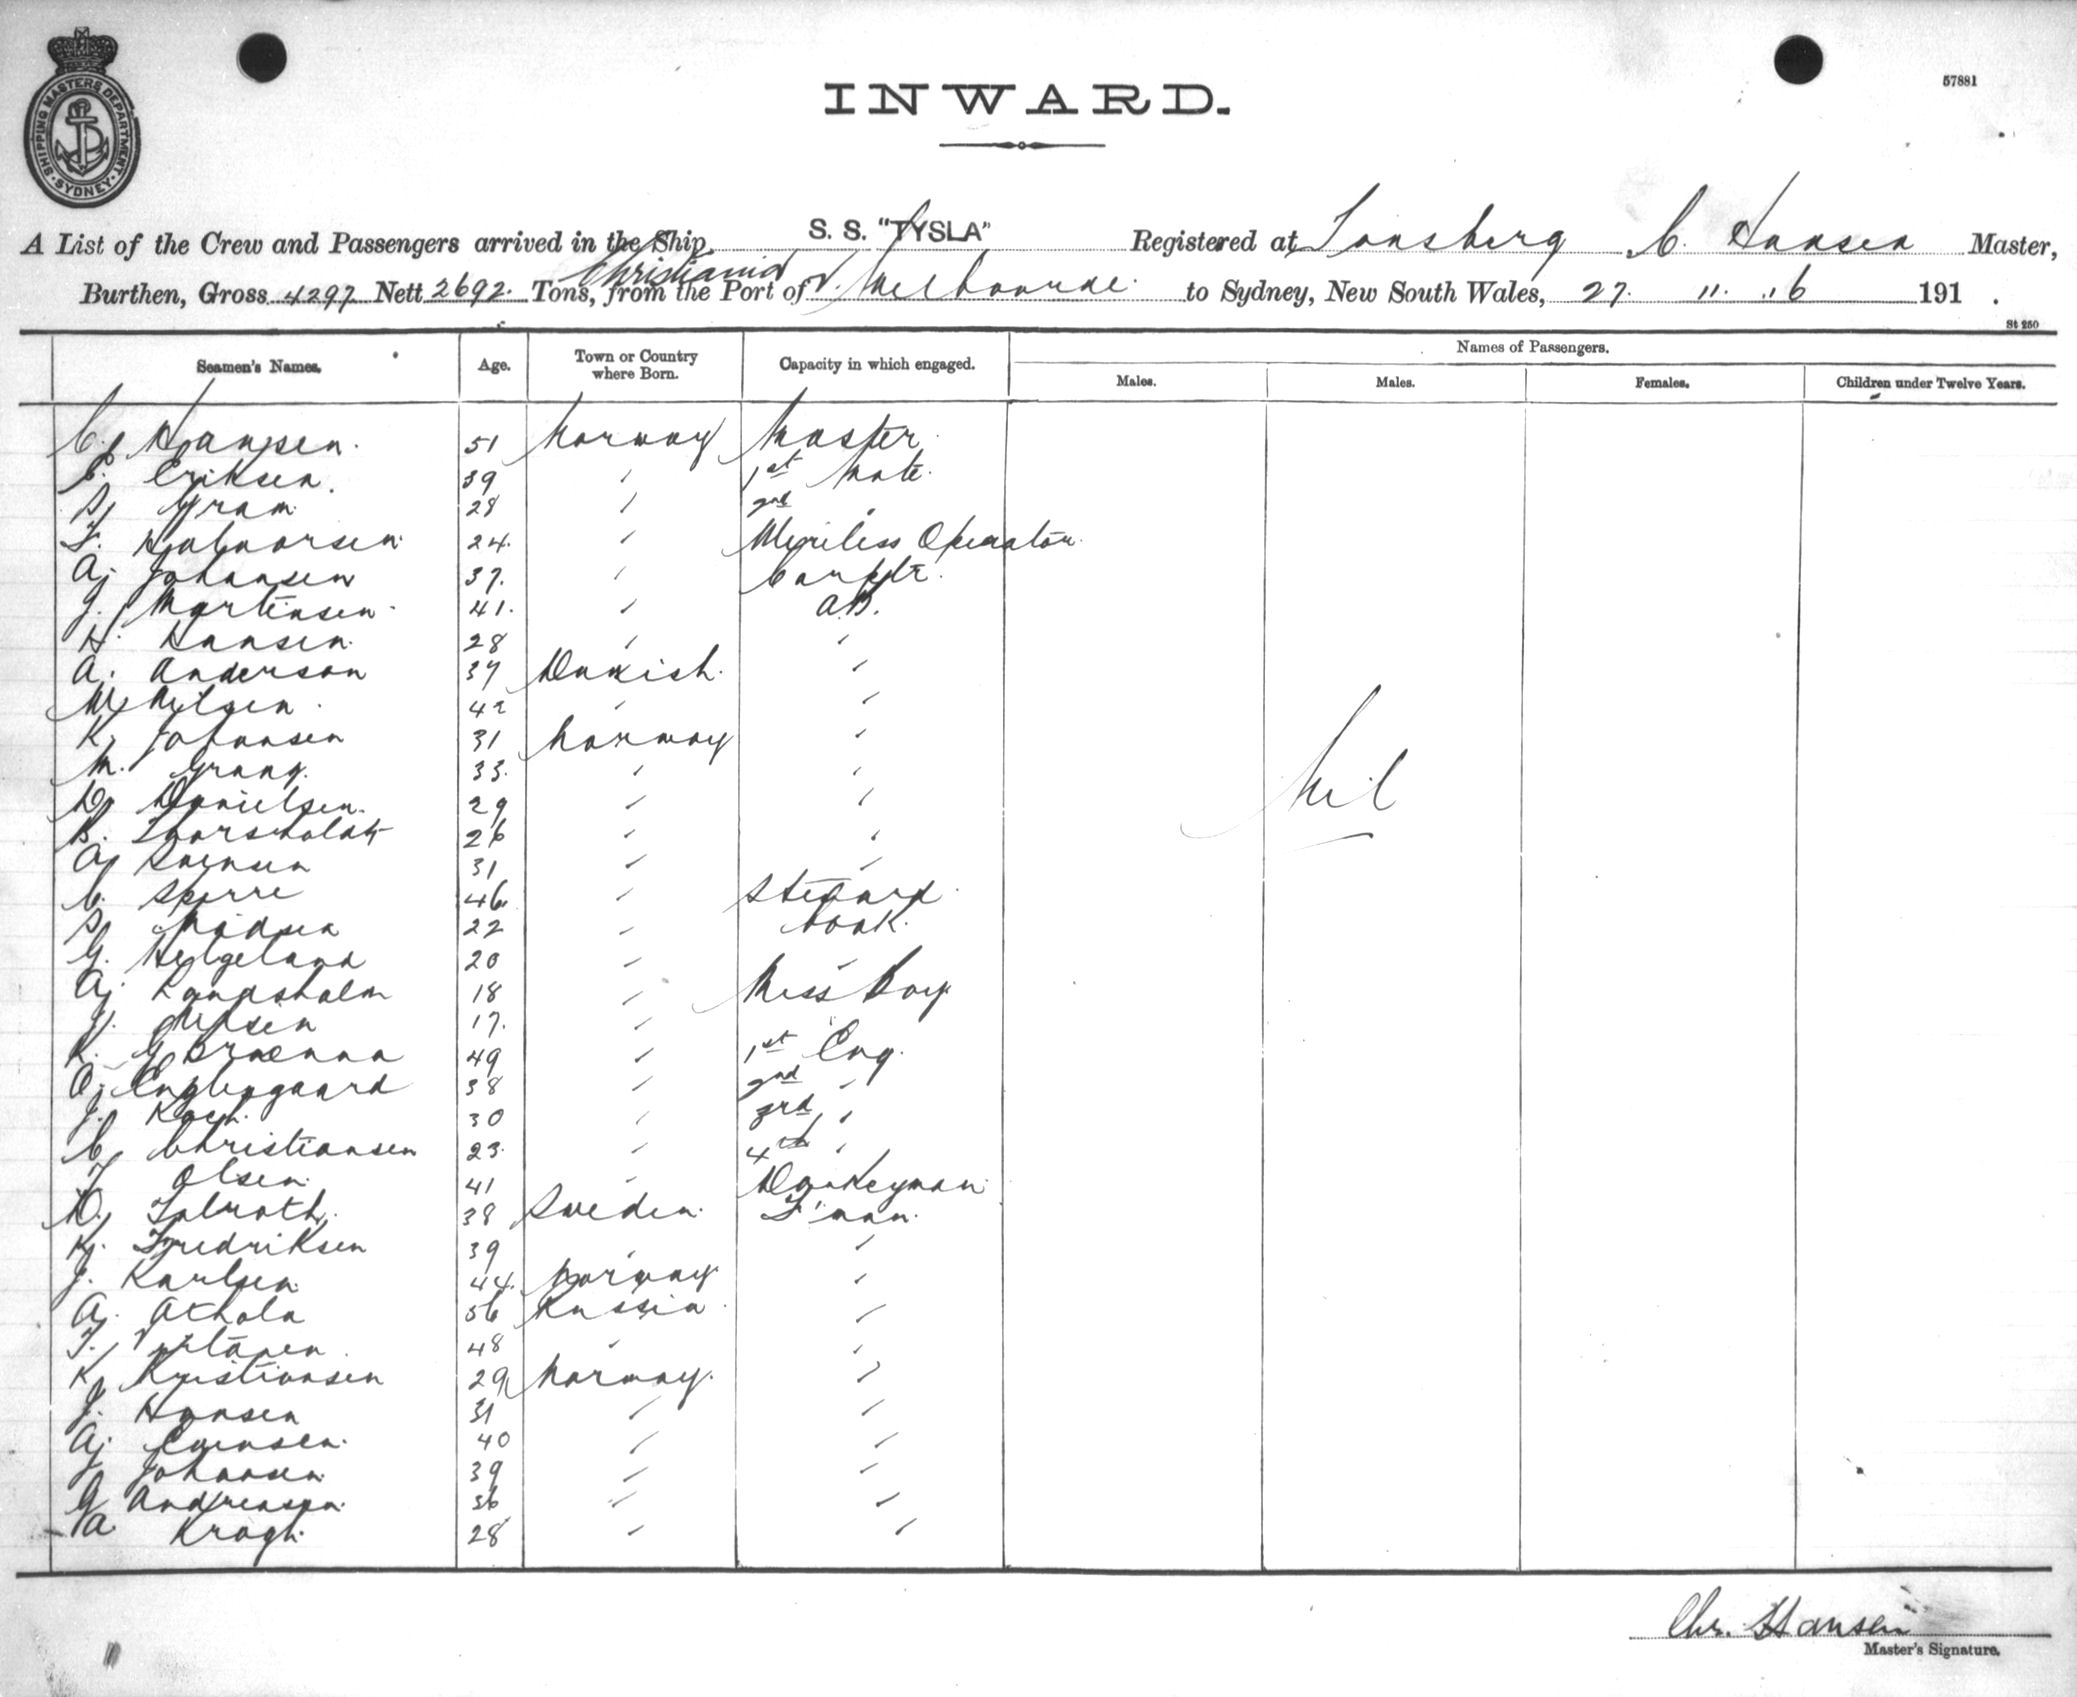 SHIPPING MASTERS DEPARTMENT
SYDNEY
57881
INWARD.
A List of the Crew and Passengers arrived in the Ship S. S. "TYSLA" Registered at Tonsberg C. Hansen Master,
Burthen, Gross 4297 Nett 2692. Tons, from the Port of Christiania v. Melbourne. to Sydney, New South Wales, 27. 11. 16 191 .
St 250
Seamen's Names. Age. Town or Country where Born. Capacity in which engaged. Names of Passengers.
Males. Males. Females. Children under Twelve Years.
C. Hansen. 51 Norway Master.
C. Eriksen. 39 " 1st Mate.
S. Gram 28 " 2nd "
T. Halvorsen. 24. " Wireless Operator.
A. Johansen 37. " Carptr.
J. Martinsen. 41. " AB.
H. Hansen. 28 " "
A. Anderson 37 Danish. "
M. Nilsen. 42 " "
K. Johansen 31 Norway "
M. Grang. 33. " "
D. Danielsen. 29 " "
B. 26 " "
A. Svensen 31 " "
C. Sperre 46. " Steward.
S. Madsen 22 " Cook.
G. Helgeland 20 " "
A. 18 " Mess Boy
J. 17. " "
K. G Braenna 49 " 1st Eng.
O. 38 " 2nd "
J. Koch. 30 " 3rd "
C. Christiansen 23. " 4th "
T. Olsen. 41 " Donkeyman.
D. 38 Sweden. F'man.
K. Fredriksen 39 " "
J. Karlsen 44. Norway. "
A. Athola 56 Russia. "
T. Virtanen. 48 " "
K. Kristiansen 29 Norway. "
J. Hansen 31 " "
A. Evensen. 40 " "
J. Johansen. 39 " "
G Andreasen. 36 " "
A Krogh. 28 " "
Nil
Chr. Hansen
Master's Signature.